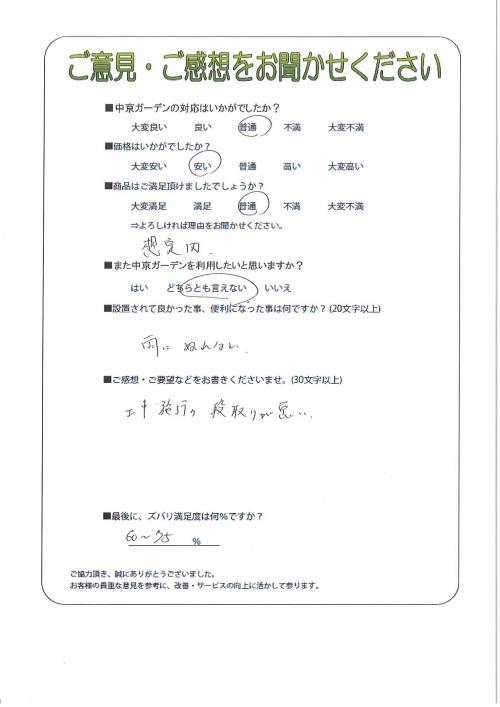 ご意見・ご感想をお聞かせください
■中京ガーデンの対応はいかがでしたか？
大変良い 良い 普通 不満 大変不満
■価格はいかがでしたか？
大変安い 安い 普通 高い 大変高い
■商品はご満足頂けましたでしょうか？
大変満足 満足 普通 不満 大変不満
⇒よろしければ理由をお聞かせください。
想定内.
■また中京ガーデンを利用したいと思いますか？
はい どちらとも言えない いいえ
■設置されて良かった事、便利になった事は何ですか？(20文字以上)
雨に ぬれない.
■ご感想・ご要望などをお書きくださいませ。(30文字以上)
工事 施行の 段取りが悪い.
■最後に、ズバリ満足度は何％ですか？
60〜75 %
ご協力頂き、誠にありがとうございました。
お客様の貴重な意見を参考に、改善・サービスの向上に活かして参ります。